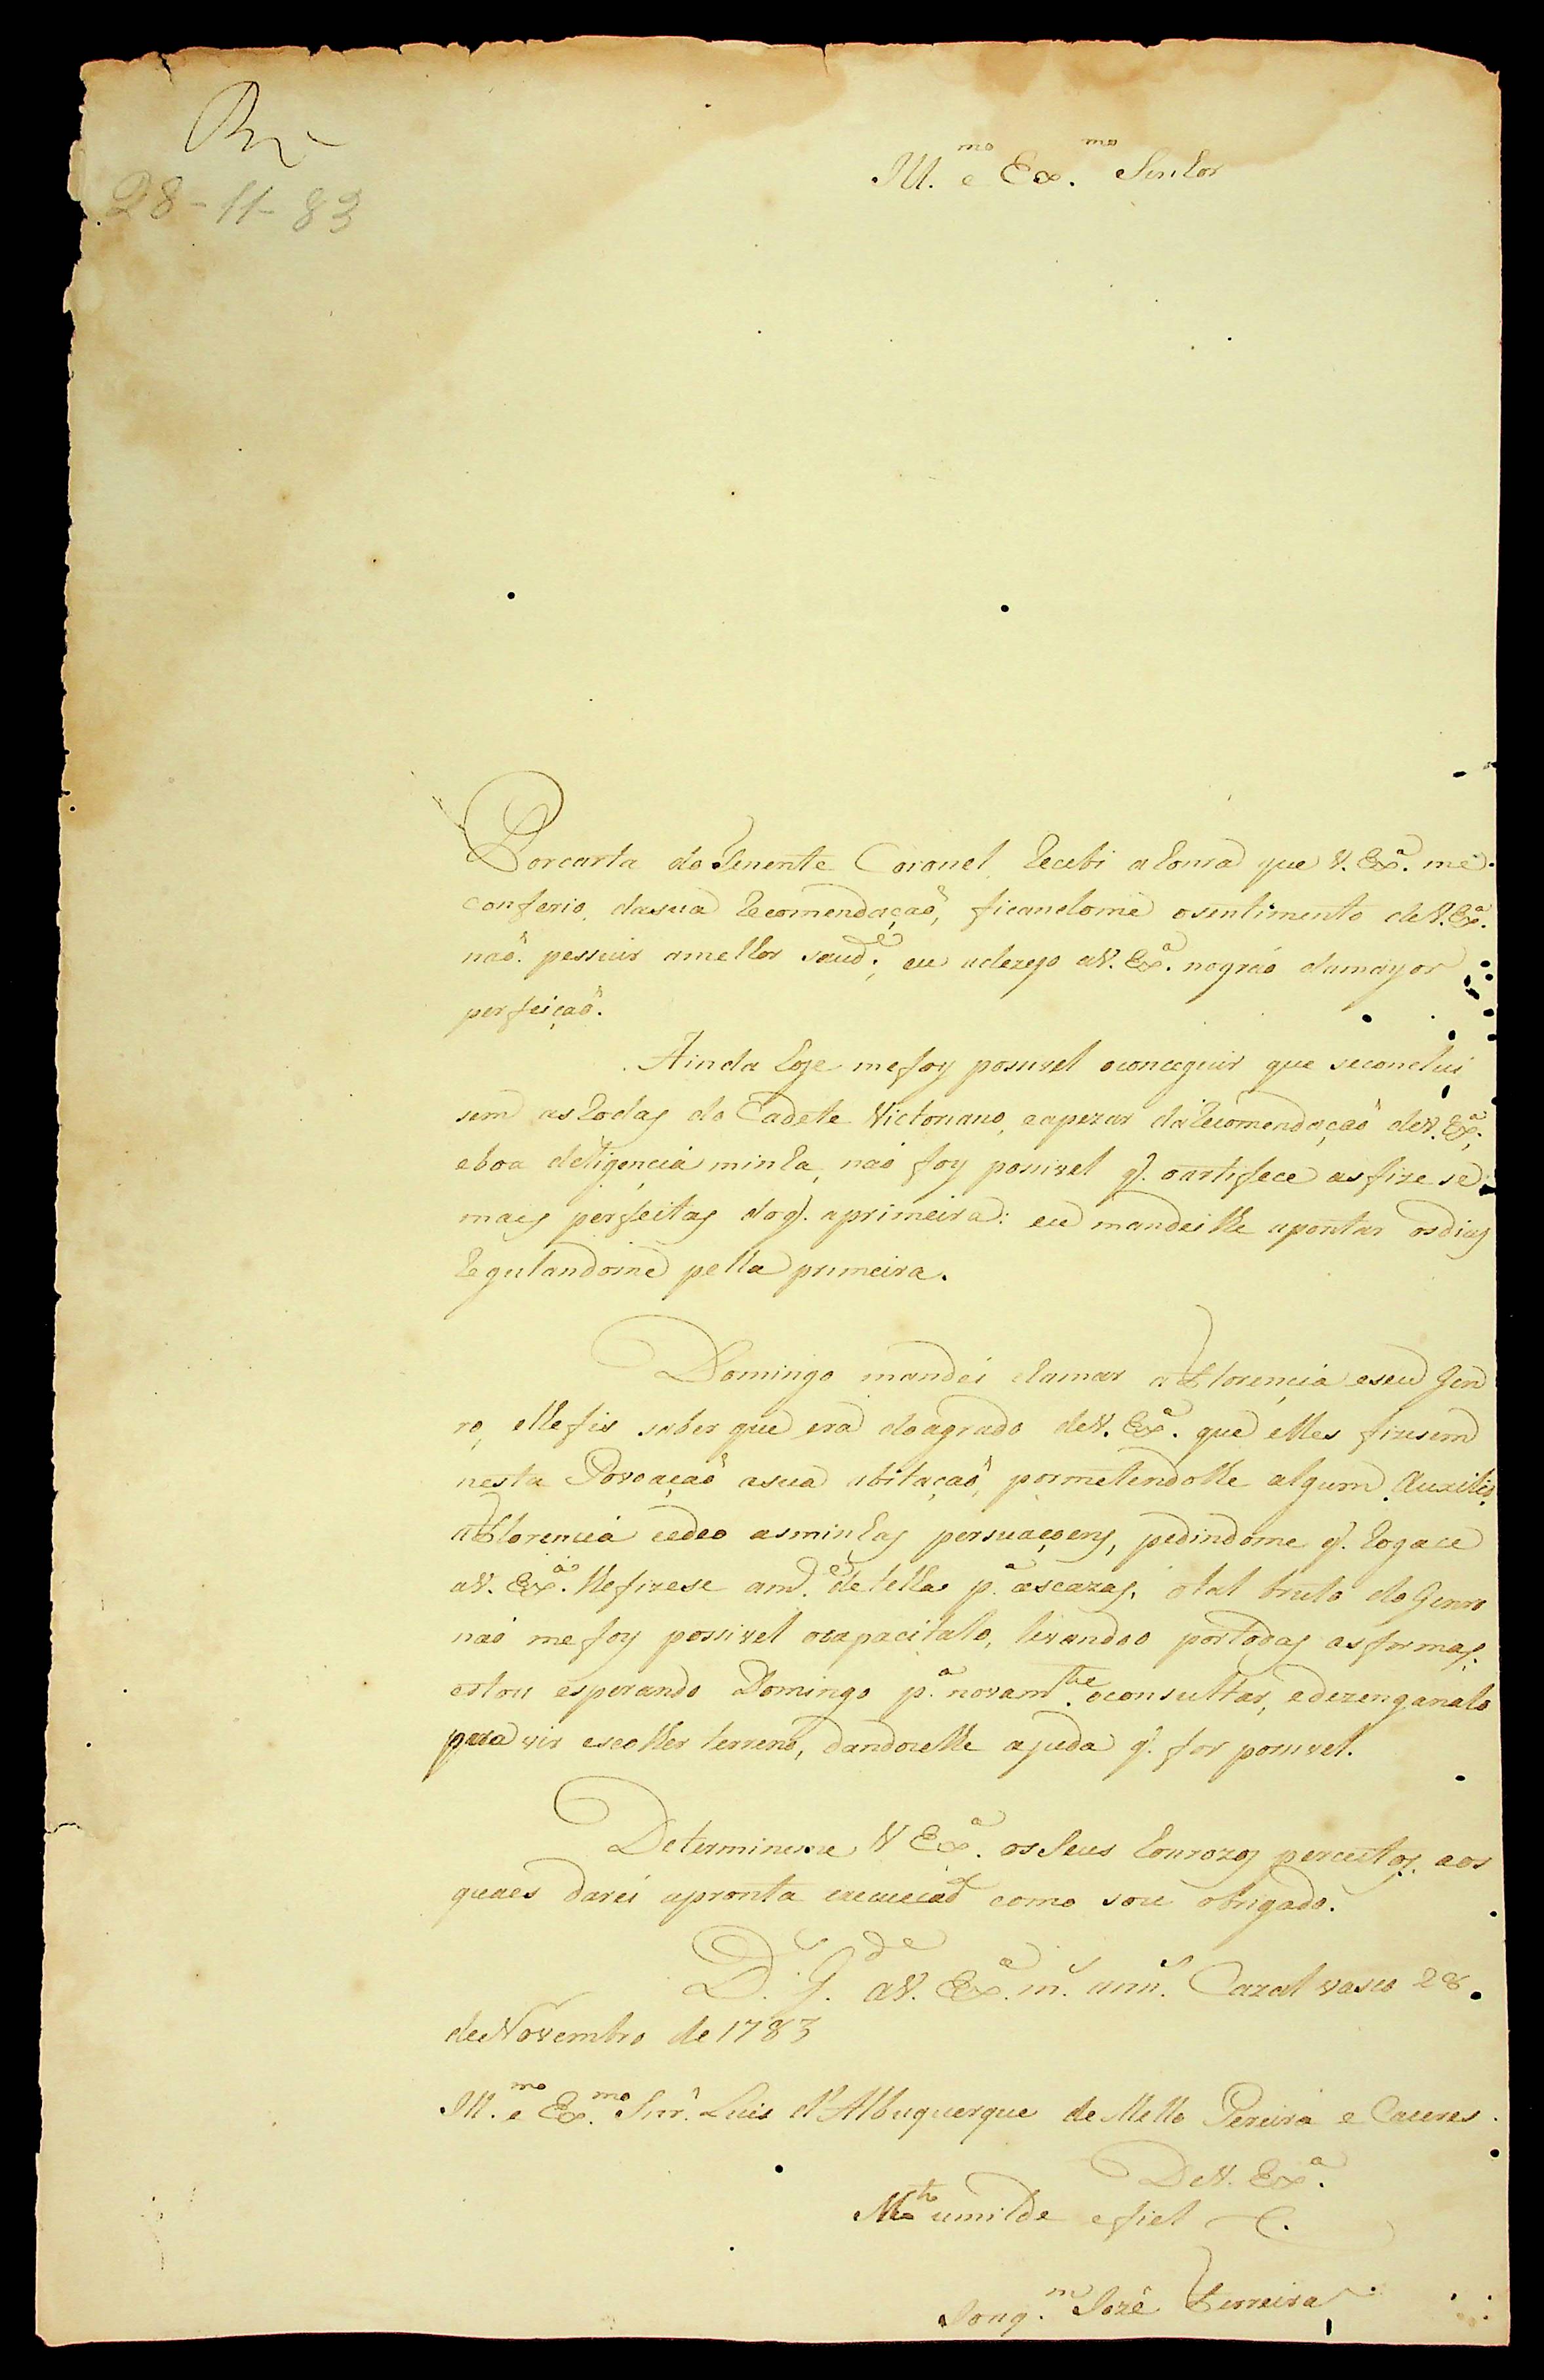 28-11-83
Ill.mo e Ex.mo Senhor
Porcarta do Tenente Coronel, Recebi ahonra que V. Ex.a me
conferio, dasua Recomendação, ficandome osentimento deV. Ex.a
não pessuir amelhor saud.e, eu adezejo aV. Ex.a nográo damayor
perfeição.
Ainda hoje mefoy posivel oconceguir que seconclui
sem asRodas do Cadete Victoriano, eapezar daRecomendação deV. Ex.a,
eboa deligencia minha, não foy possivel q. oartifece asfizese
maes perfeitas doq. aprimeira: eu mandeilhe apontar osdias
Regulandome pella primeira.
Domingo mandei chamar aFlorencia eseu Gen
ro, elhefis saber que era doagrado deV. Ex.a que elles fizesem
nesta Povoação asua abitação, pormetendolhe algum Auxilio,
aFlorencia cedeo asminhas persuaçoens, pedindome q. Rogace
aV. Ex.a lhefizese am.d.e detelha p.a ascazas, otal bruto doGenro
não mefoy possivel ocapacitalo, levandoo portodas asformas,
estou esperando Domingo p.a novam.te oconsultar, edezenganalo
para vir escolher terreno, dandoselhe ajuda q. for posivel.
Determineme V Ex.a os Seus honrozos perceitos, aos
quaes darei apronta execução como sou obrigado.
D.s G.de aV. Ex.a m.s ann.s Cazal vasco 28
deNovembro de 1783
Ill.mo e Ex.mo Snr. Luis d'Albuquerque de Mello Pereira e Caceres
DeV. Ex.a
M.to umilde efiel C.
Joaq.m Jozé Ferreira